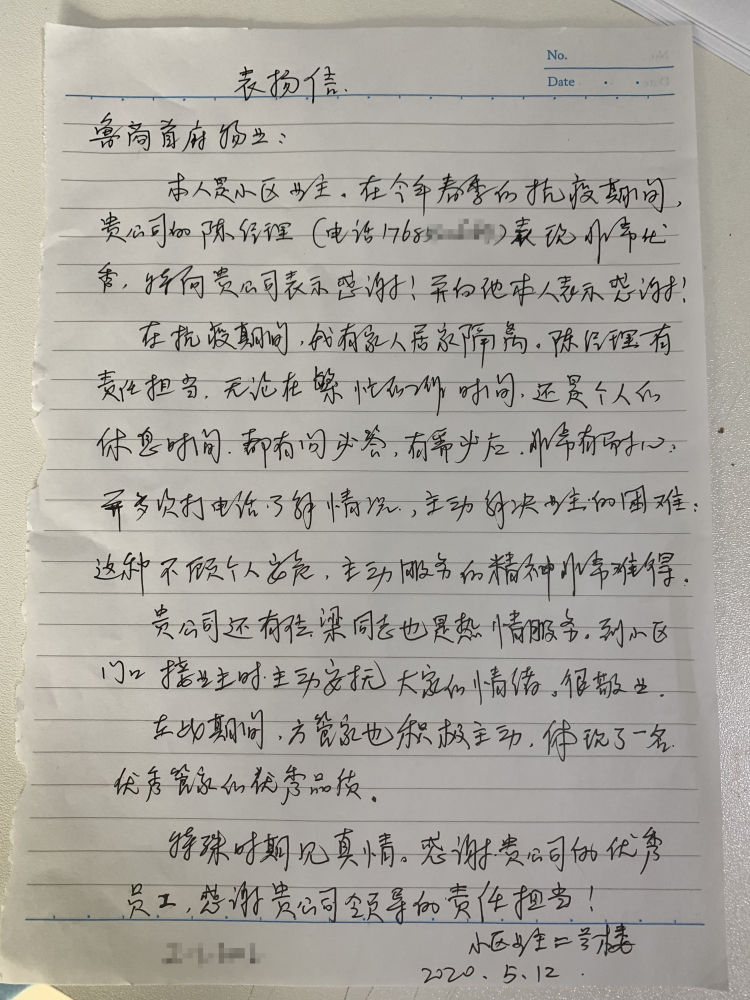 No.
Date
表扬信.
鲁商首府物业：
本人是小区业主。在今年春季的抗疫期间，
贵公司的陈经理（电话17685）表现非常优
秀，特向贵公司表示感谢！并向他本人表示感谢！
在抗疫期间，我有家人居家隔离。陈经理有
责任担当，无论在繁忙的工作时间，还是个人的
休息时间，都有问必答，有需必应，非常有耐心；
并多次打电话了解情况，主动解决业主的困难；
这种不顾个人安危，主动服务的精神非常难得。
贵公司还有位梁同志也是热情服务。到小区
门口接业主时主动安抚大家的情绪。很敬业。
在此期间，方管家也积极主动，体现了一名
优秀管家的优秀品质。
特殊时期见真情。感谢贵公司的优秀
员工，感谢贵公司领导的责任担当！
小区业主二号楼
2020.5.12.